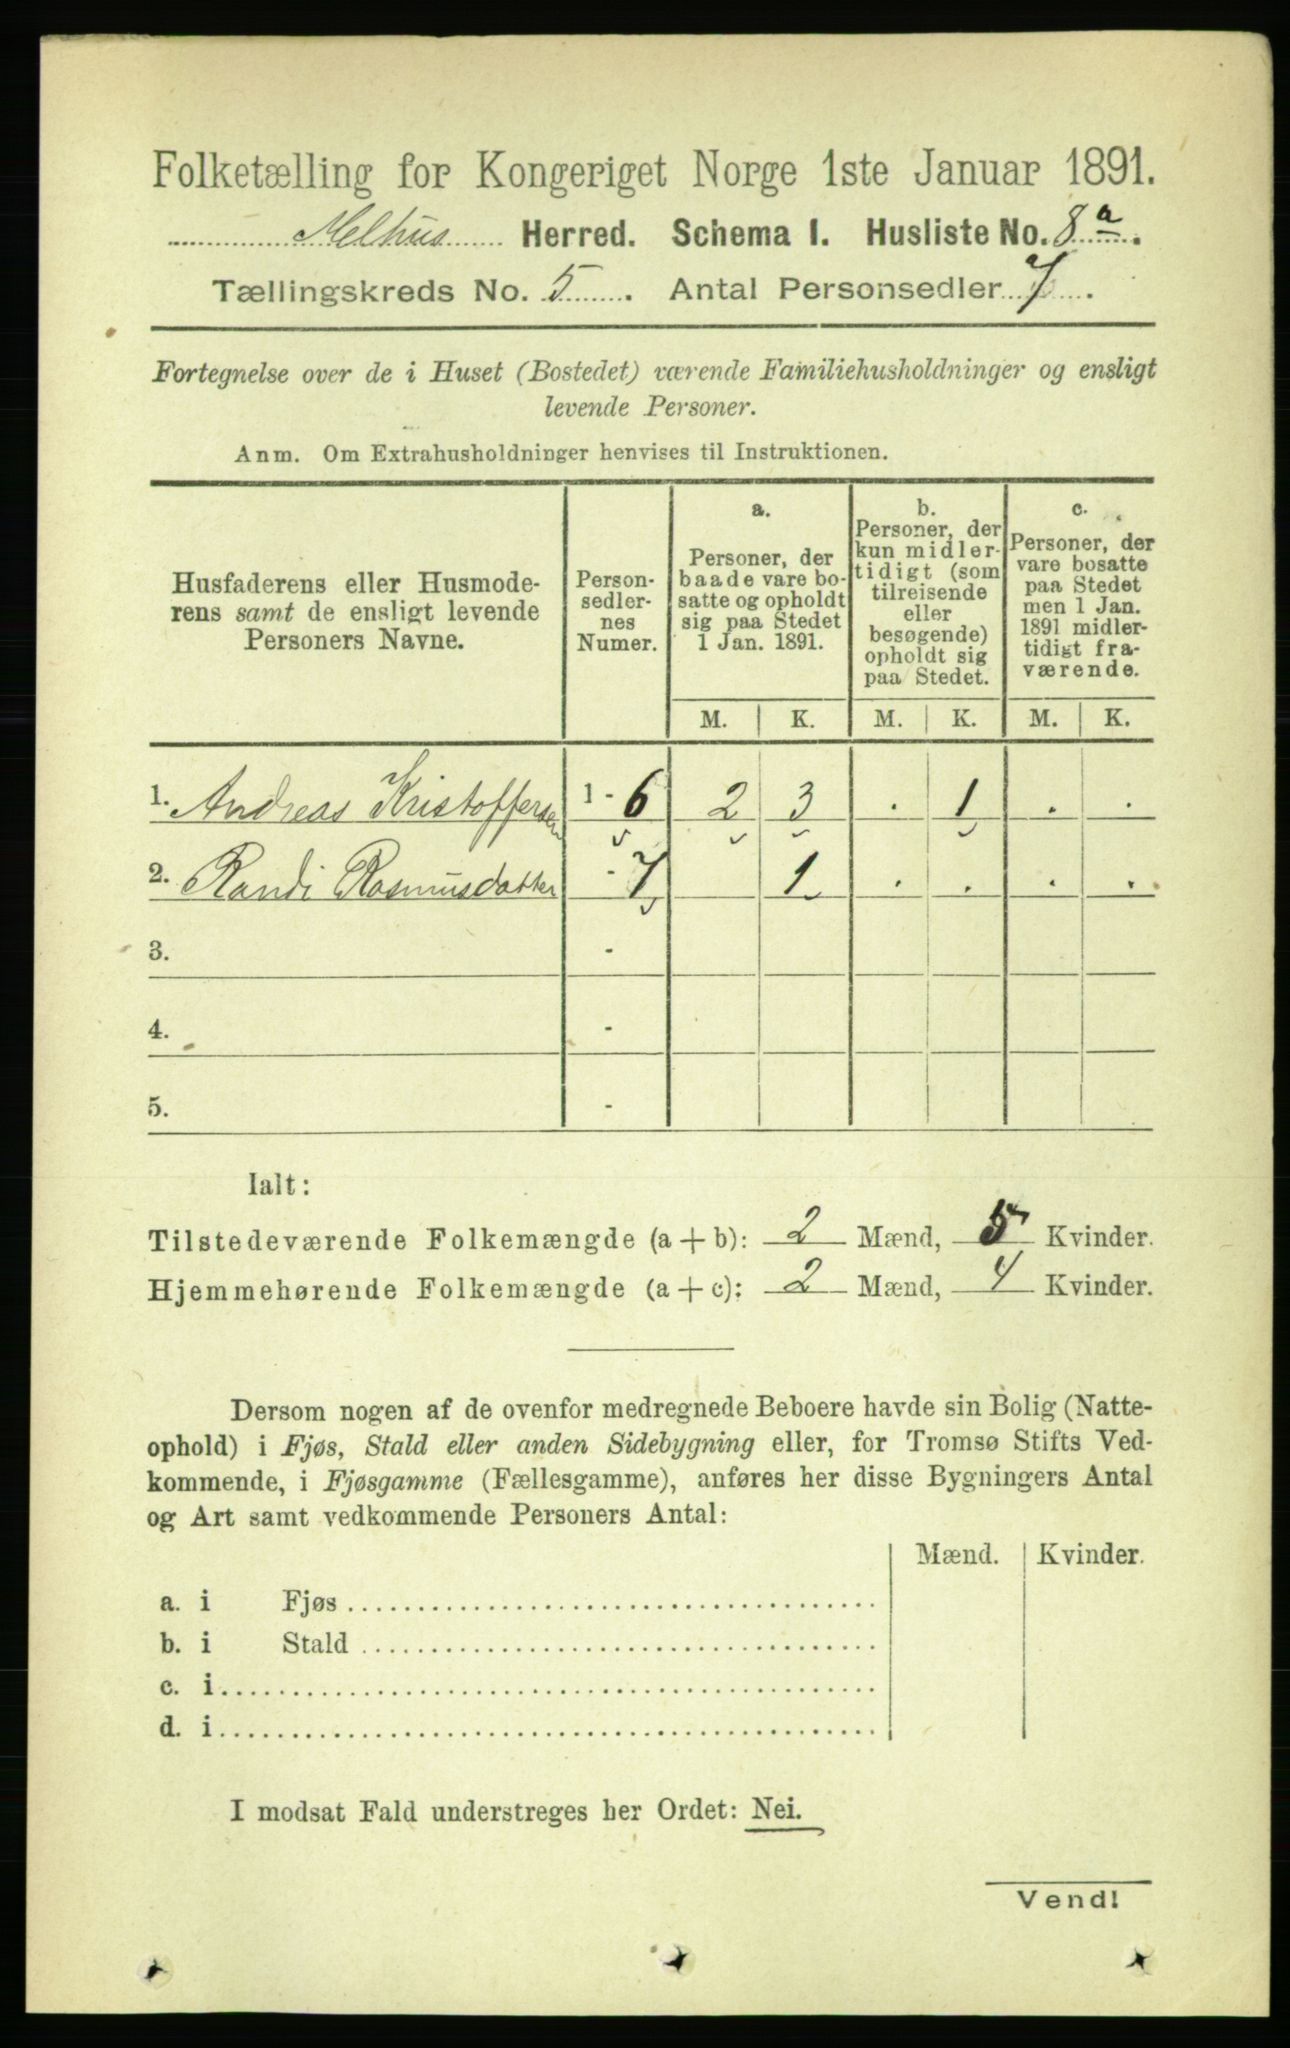 Folketælling for Kongeriget Norge 1ste Januar 1891.
Melhus Herred. Schema I. Husliste No. 8 a.
Tællingskreds No. 5. Antal Personsedler 7.
Fortegnelse over de i Huset (Bostedet) værende Familiehusholdninger og ensligt
levende Personer.
Anm. Om Extrahusholdninger henvises til Instruktionen.
Husfaderens eller Husmode-
rens samt de ensligt levende
Personers Navne.
Person-
sedler-
nes
Numer.
a.
Personer, der
baade vare bo-
satte og opholdt
sig paa Stedet
1 Jan. 1891.
b.
Personer, der
kun midler-
tidigt (som
tilreisende
eller
besøgende)
opholdt sig
paa Stedet.
c.
Personer, der
vare bosatte
paa Stedet
men 1 Jan.
1891 midler-
tidigt fra-
værende.
M. K. M. K. M. K.
1. Andreas Kristoffersen 1 - 6 2 3 . 1 . .
2. Randi Rasmusdatter - 7 1 . . . .
3. -
4. -
5. -
Ialt:
Tilstedeværende Folkemængde (a + b): 2 Mænd, 5 Kvinder.
Hjemmehørende Folkemængde (a + c): 2 Mænd, 4 Kvinder.
Dersom nogen af de ovenfor medregnede Beboere havde sin Bolig (Natte-
ophold) i Fjøs, Stald eller anden Sidebygning eller, for Tromsø Stifts Ved-
kommende, i Fjøsgamme (Fællesgamme), anføres her disse Bygningers Antal
og Art samt vedkommende Personers Antal:
Mænd. Kvinder.
a. i Fjøs
b. i Stald
c. i
d. i
I modsat Fald understreges her Ordet: Nei.
Vend!